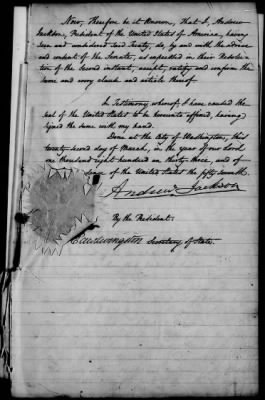 Now, Therefore be it known, that I, Andrew
Jackson, President of the United States of America, having
seen and considered said Treaty, do, by and with the advice
and consent of the Senate, as expressed in their Resolu-
tion of the second instant, accept, ratify and confirm the
same and every clause and article thereof.
In Testimony whereof, I have caused the
seal of the United States to be hereunto affixed, having
signed the same with my hand.
Done at the City of Washington, this
twenty-second day of March, in the year of our Lord
one thousand eight hundred an thirty three, and of
of the United States the fifty seventh.
Andrew Jackson
By the President:
Edw Livingston Secretary of State.